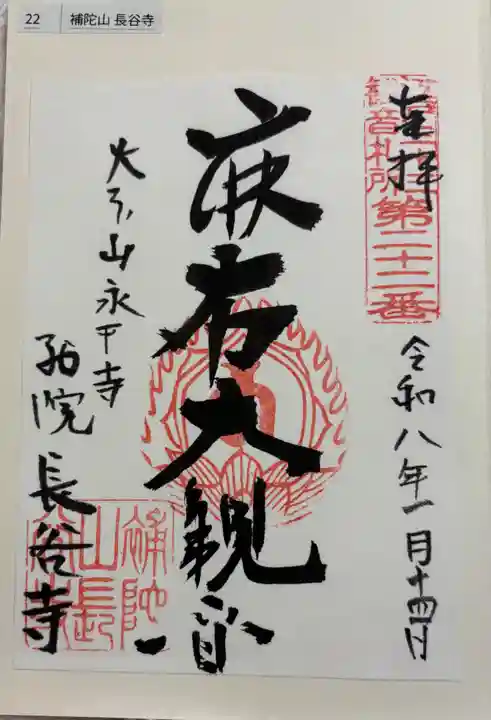 22 補陀山 長谷寺
奉拝
第二十二番
令和八年一月十四日
麻布大観音
大本山永平寺
別院長谷寺
補陀山長谷寺